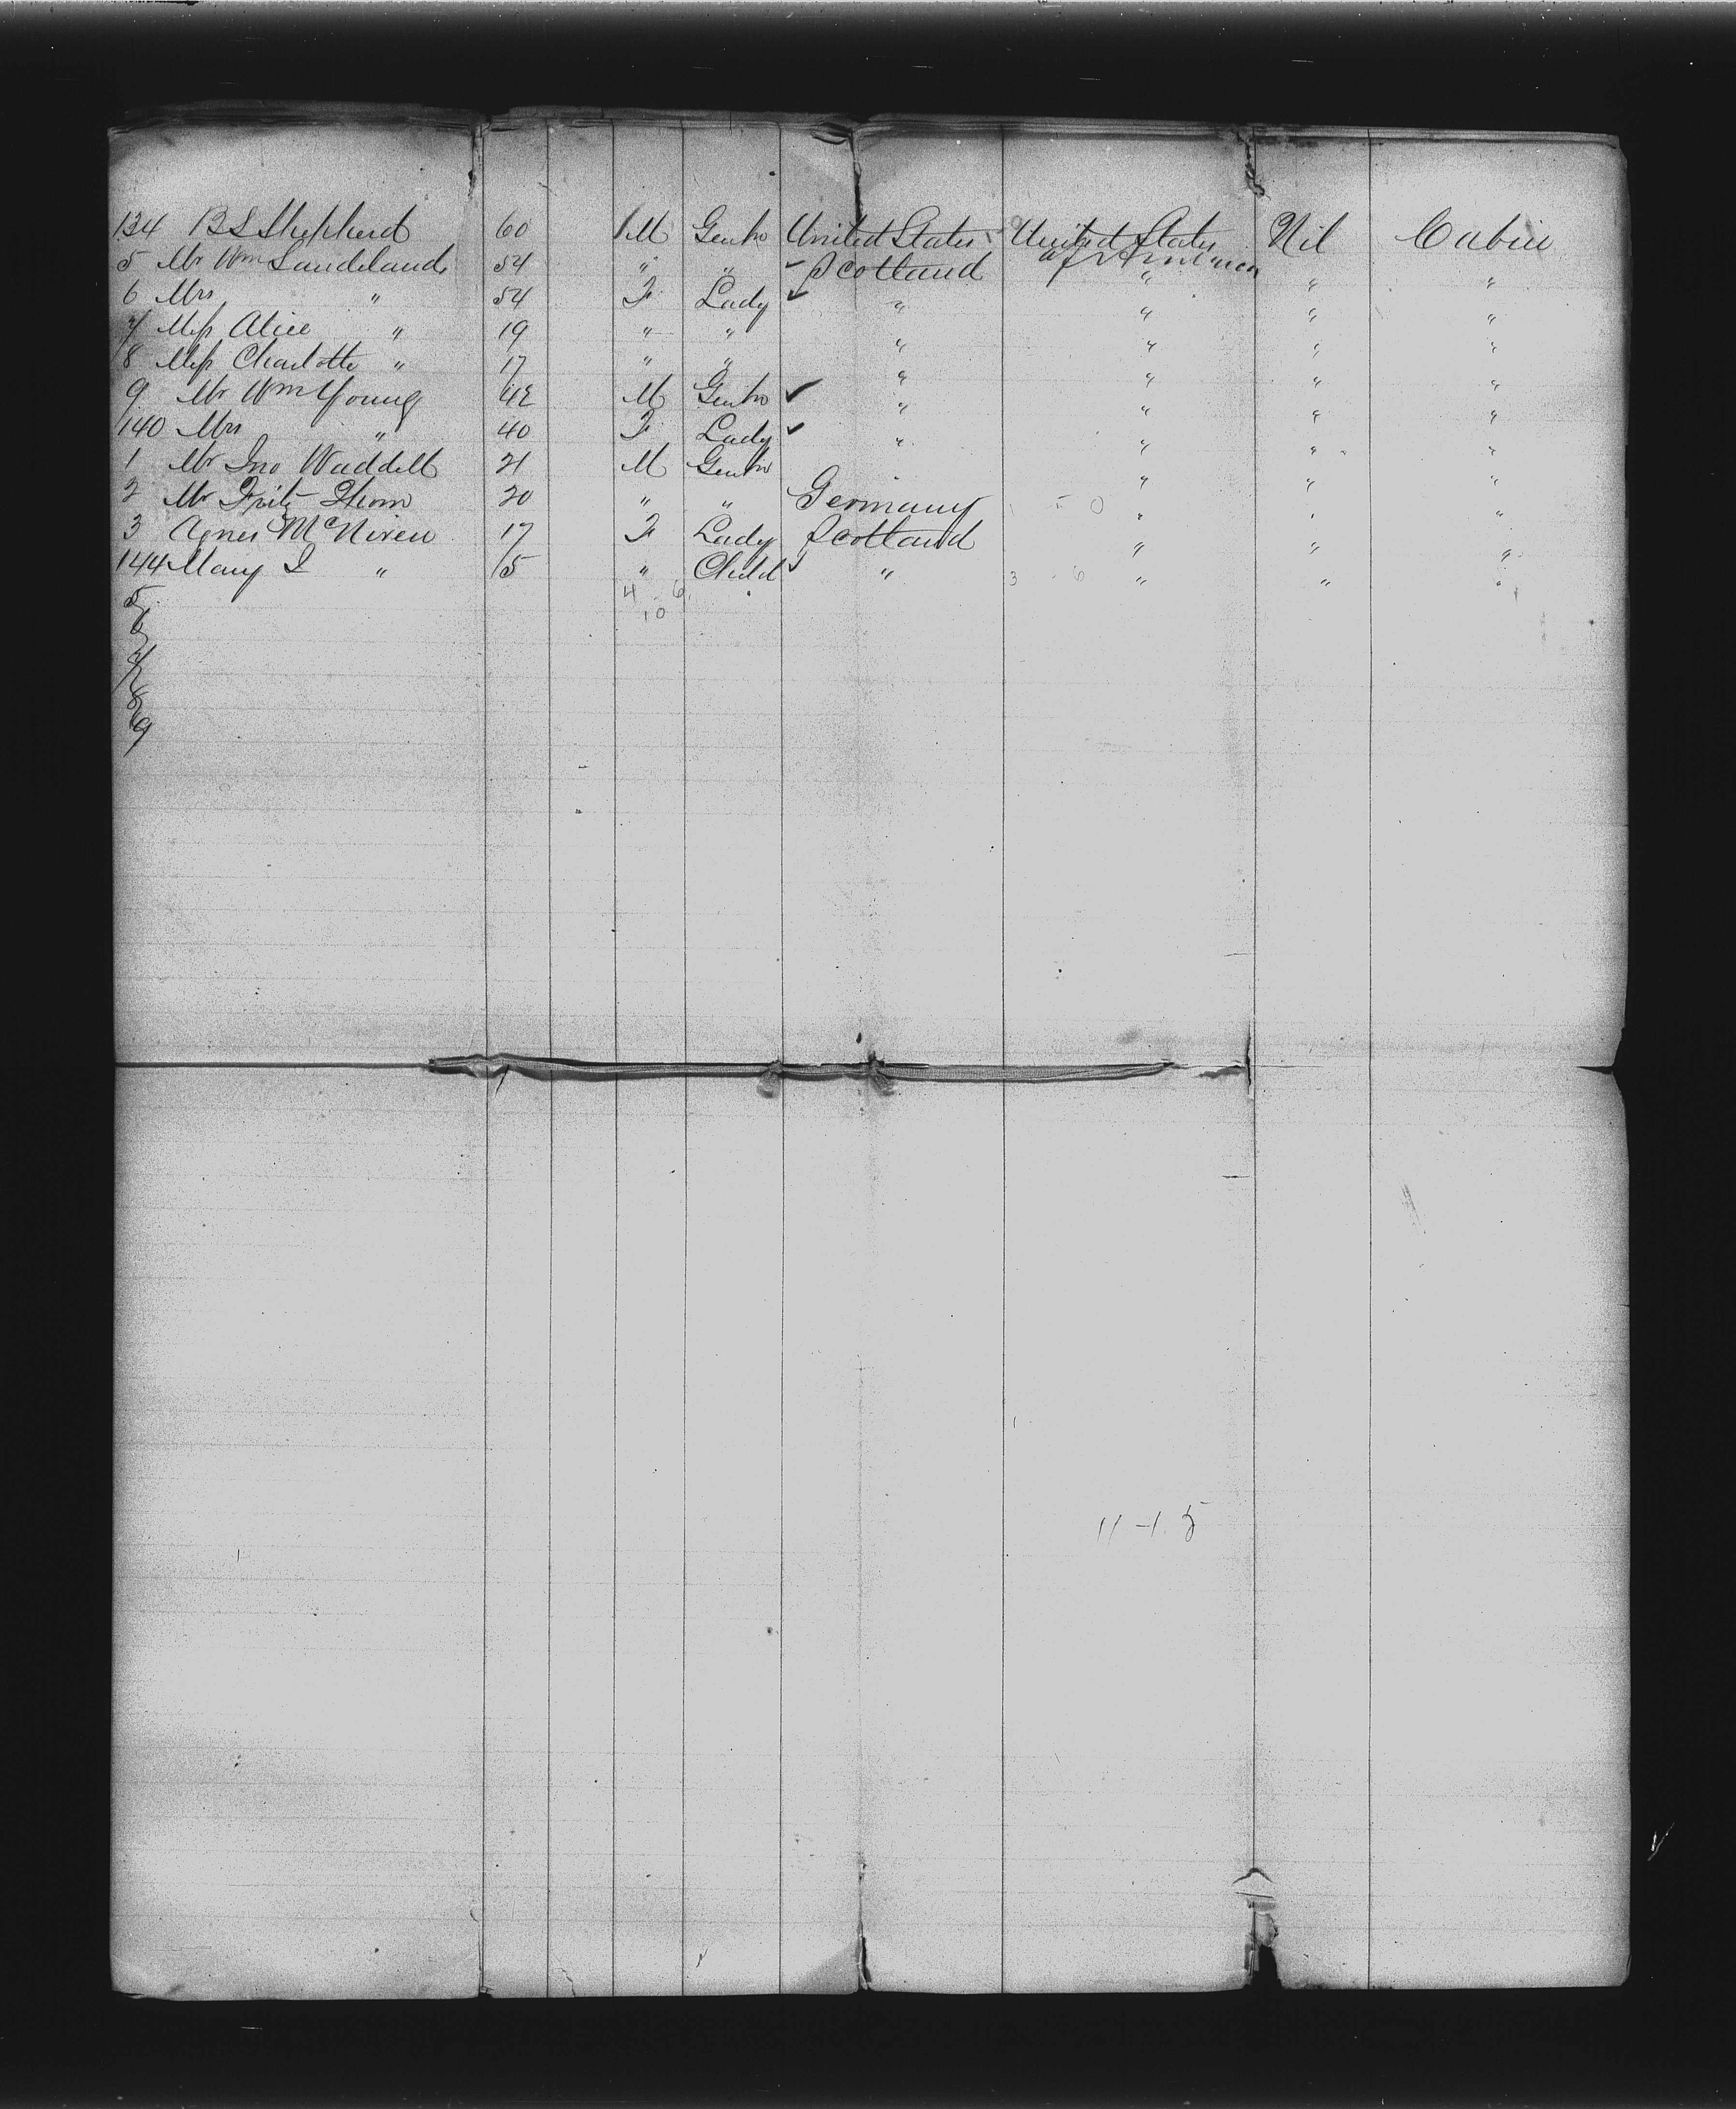 134 B S Shepherd 60 M Gentn United States United States of America Nil Cabin
5 Mr Wm Sandelands 54 " " Scotland " " "
6 Mrs " 54 F Lady " " " "
7 Miss Alice " 19 " " " " " "
8 Miss Charlotte " 17 " " " " " "
9 Mr Wm Young 42 M Gentn " " " "
140 Mrs " 40 F Lady " " " "
1 Mr Jno Waddell 21 M Gentn " " "
2 Mr Fritz Thom 20 " " Germany " " "
3 Agnes McNiven 17 F Lady Scotland " " "
144 Mary I " 5 " Child " 3 - 6 " " "
5 4 - 6
6 10
7
8
9
11-1.5